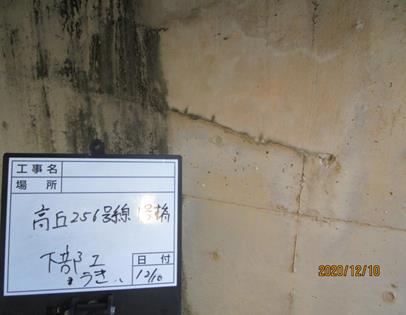 工事名
場所
高丘256号線 1号橋
下部工
うき
日付
12/10
2020/12/10